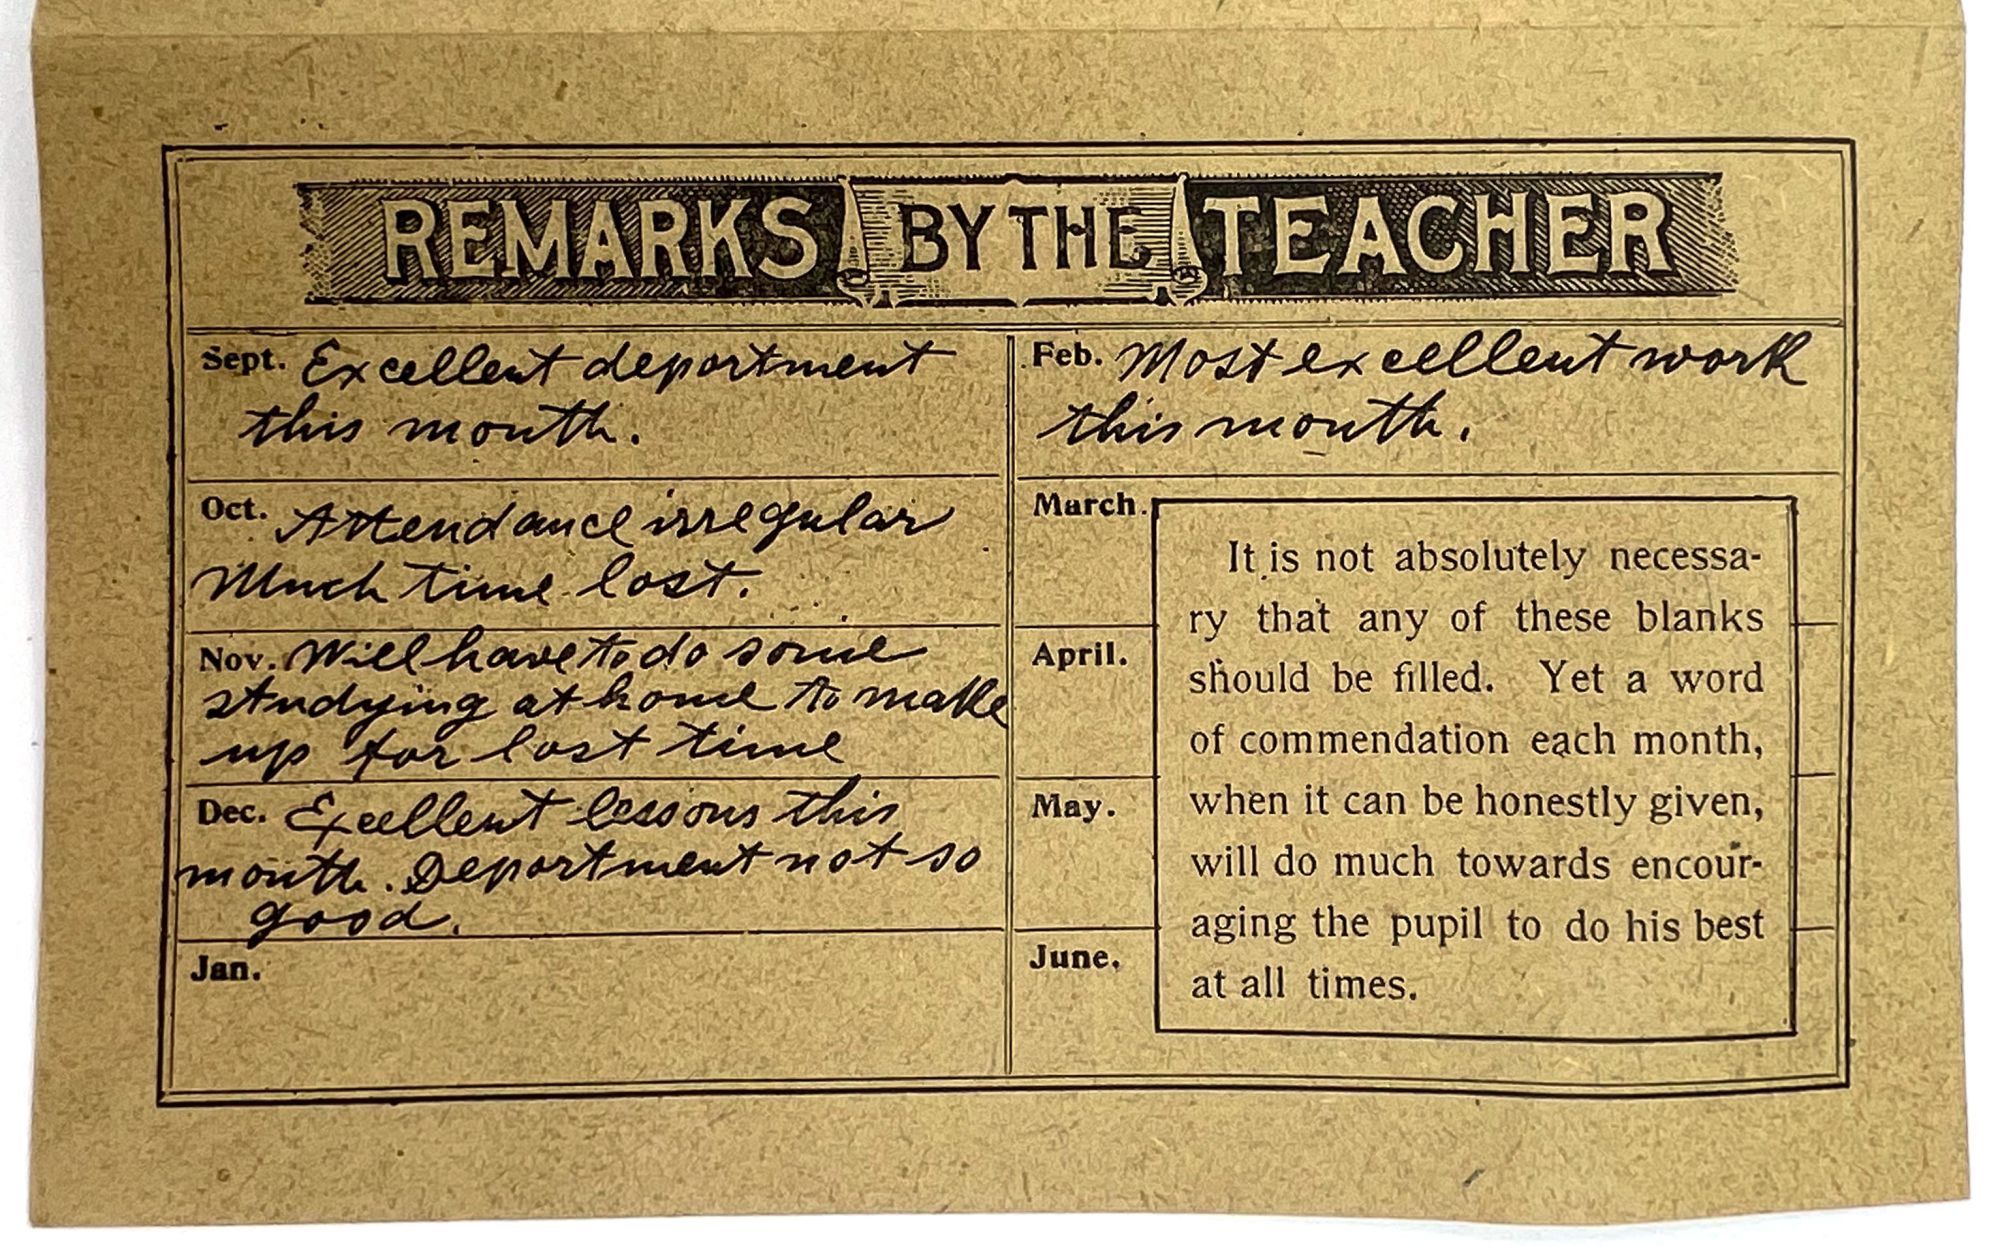 REMARKS BY THE TEACHER
Sept. Excellent department
this month.
Oct. Attendance irregular
Much time lost.
Nov. Will have to do some
studying at home to make
up for lost time
Dec. Excellent lessons this
month. Department not so
good.
Jan.
Feb. Most excellent work
this month.
March.
April.
May.
June.
It is not absolutely necessa-
ry that any of these blanks
should be filled. Yet a word
of commendation each month,
when it can be honestly given,
will do much towards encour-
aging the pupil to do his best
at all times.